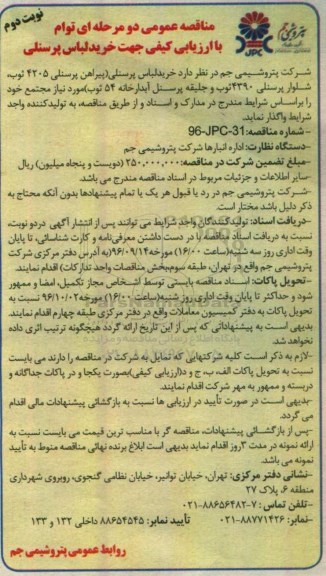 نوبت دوم
مناقصه عمومی دو مرحله ای توام
با ارزیابی کیفی جهت خریدلباس پرسنلی
پتروشیمی جم
JPC
شرکت پتروشیمی جم در نظر دارد خریدلباس پرسنلی(پیراهن پرسنلی ۴۲۰۵ ثوب،
شلوار پرسنلی ۴۳۹۰ثوب و جلیقه پرسنل آبدارخانه ۵۴ ثوب)مورد نیاز مجتمع خود
را براساس شرایط مندرج در مدارک و اسناد و از طریق مناقصه، به تولیدکننده واجد
شرایط واگذار نماید.
-شماره مناقصه:96-JPC-31
-دستگاه نظارت: اداره انبارها شرکت پتروشیمی جم
-مبلغ تضمین شرکت در مناقصه:۲۵۰,۰۰۰,۰۰۰ (دویست و پنجاه میلیون) ریال
-سایر اطلاعات و جزئیات مربوط در اسناد مناقصه مندرج می باشد.
-شرکت پتروشیمی جم در رد یا قبول هر یک یا تمام پیشنهادها بدون آنکه محتاج به
ذکر دلیل باشد مختار است.
-دریافت اسناد: تولیدکنندگان واجد شرایط می توانند پس از انتشار آگهی دردو نوبت،
نسبت به دریافت اسناد مناقصه با در دست داشتن معرفی‌نامه و کارت شناسائی، تا پایان
وقت اداری روز سه شنبه(ساعت ۱۶/۰۰) مورخه۹۶/۰۹/۱۴(به آدرس دفتر مرکزی شرکت
پتروشیمی جم واقع در تهران، طبقه سوم‌بخش مناقصات واحد تدارکات) اقدام نمایند.
-تحویل پاکات: اسناد مناقصه بایستی توسط اشخاص مجاز تکمیل، امضا و ممهور
شود و حداکثر تا پایان وقت اداری روز شنبه(ساعت ۱۶/۰۰) مورخه۹۶/۱۰/۰۲ نسبت به
تحویل پاکات به دفتر کمیسیون معاملات واقع در دفتر مرکزی طبقه چهارم اقدام نمایند.
بدیهی است به پیشنهاداتی که پس از این تاریخ ارائه گردد هیچگونه ترتیب اثری داده
نخواهد شد.
-لازم به ذکر است کلیه شرکتهایی که تمایل به شرکت در مناقصه را دارند می بایست
نسبت به تحویل پاکات الف، ب، ج و د(ارزیابی کیفی)بصورت یکجا و در پاکات جداگانه و
دربسته و ممهور به مهر شرکت اقدام نمایند.
-بدیهی است در صورت تأیید در ارزیابی ها نسبت به بازگشائی پیشنهادات مالی اقدام
می گردد.
-پس از بازگشائی پیشنهادات، مناقصه گر با مناسب ترین قیمت می بایست نسبت به
ارائه نمونه در مدت ۳روز اقدام نماید بدیهی است ابلاغ برنده نهائی مناقصه منوط به تأیید
نمونه می باشد.
-نشانی دفتر مرکزی: تهران، خیابان توانیر، خیابان نظامی گنجوی، روبروی شهرداری
منطقه ۶، پلاک ۲۷
-تلفن تماس : ۷-۸۸۶۵۶۴۸۲-۰۲۱
-نمابر: ۸۸۷۷۱۴۲۶-۰۲۱ تأیید نمابر: ۸۸۶۵۴۵۴۵ داخلی ۱۳۲ و ۱۳۳
روابط عمومی پتروشیمی جم